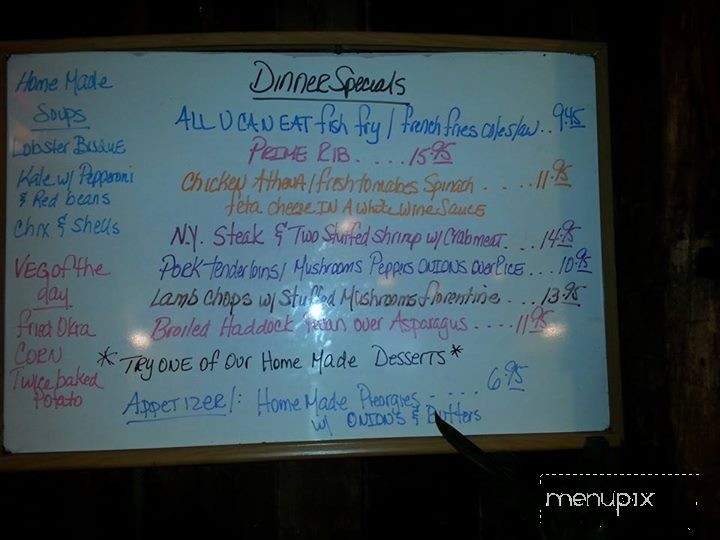 Home Made
Soups
Lobster Bisque
Kale w/ Pepperoni
& Red beans
Chix & Shells
VEG of the
day
Fried Okra
CORN
Twice baked
Potato
Dinner Specials
ALL U CAN EAT fish fry / french fries coleslaw.. 9.45
PRIME RIB. . . . . 15.95
Chicken Athena / fresh tomatoes Spinach . . . . . 11.95
feta cheese IN A white wine Sauce
N.Y. Steak & Two Stuffed Shrimp w/ Crabmeat. . . 14.95
Pork tenderloins / Mushrooms Peppers ONIONS over Rice . . . 10.95
Lamb Chops w/ Stuffed Mushrooms florentine. . . 13.95
Broiled Haddock over Asparagus . . . . . 11.95
* TRY ONE of Our Home Made Desserts *
APPETIZER/: Home Made Pieorgies . . . . . 6.95
w/ ONIONS & Butters
menupix